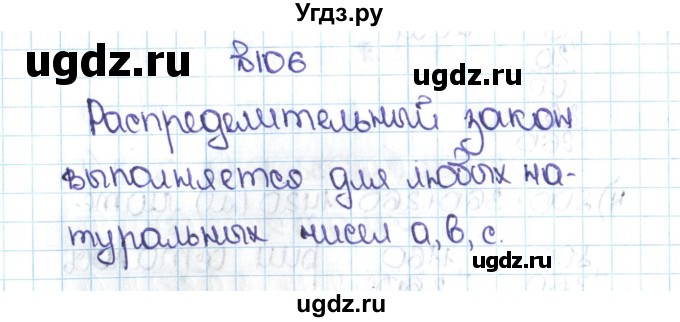 Угдз.ру
ugdz.ru №106 ugdz.ru
Распределительный закон
выполняется для любых на-
туральных чисел a, b, c.
ugdz.ru
ugdz.ru
ugdz.ru